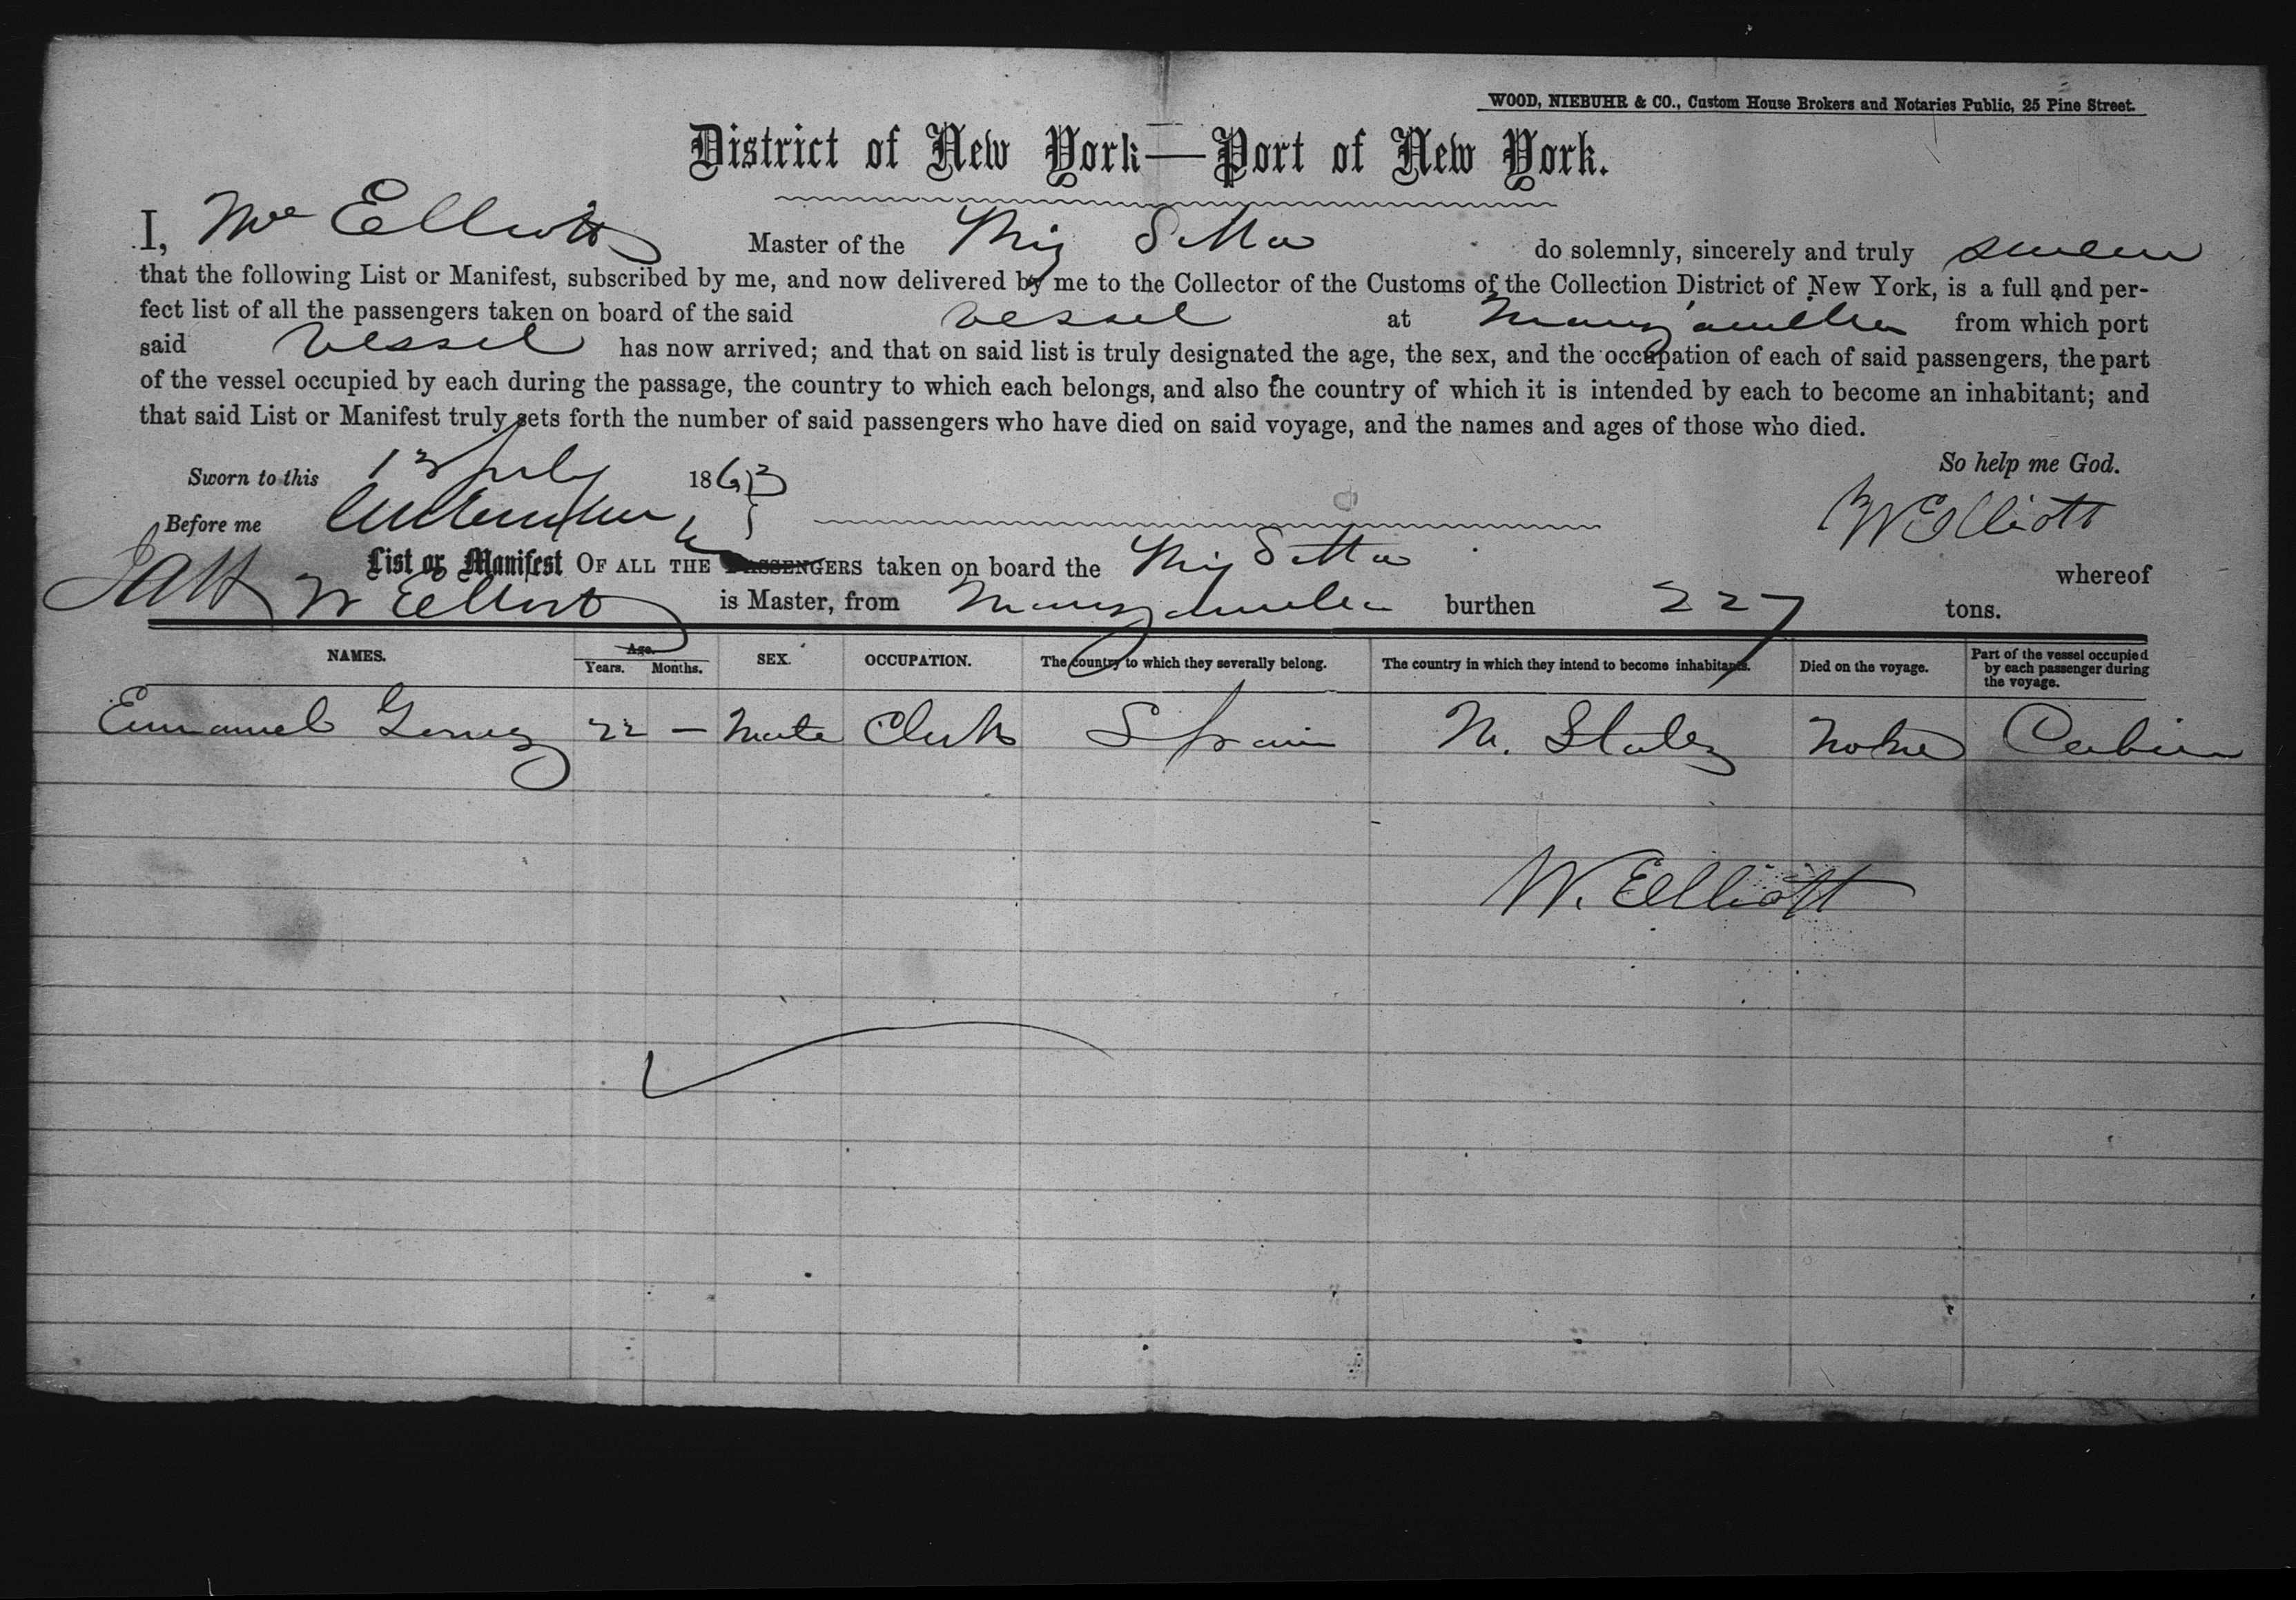 WOOD, NIEBUHR & CO., Custom House Brokers and Notaries Public, 25 Pine Street.
District of New York—Port of New York.
I, Wm Elliott Master of the Brig Setta do solemnly, sincerely and truly swear
that the following List or Manifest, subscribed by me, and now delivered by me to the Collector of the Customs of the Collection District of New York, is a full and per-
fect list of all the passengers taken on board of the said vessel at Manzanilla from which port
said vessel has now arrived; and that on said list is truly designated the age, the sex, and the occupation of each of said passengers, the part
of the vessel occupied by each during the passage, the country to which each belongs, and also the country of which it is intended by each to become an inhabitant; and
that said List or Manifest truly sets forth the number of said passengers who have died on said voyage, and the names and ages of those who died.
Sworn to this 13 July 1863 So help me God.
Before me W Elliott
List or Manifest OF ALL THE PASSENGERS taken on board the Brig Setta whereof
W Elliott is Master, from Manzanilla burthen 227 tons.
NAMES. Age. Years. Months. SEX. OCCUPATION. The country to which they severally belong. The country in which they intend to become inhabitants. Died on the voyage. Part of the vessel occupied by each passenger during the voyage.
Emanuel Gomez 22 — Male Clerk Spain U. States None Cabin
W. Elliott